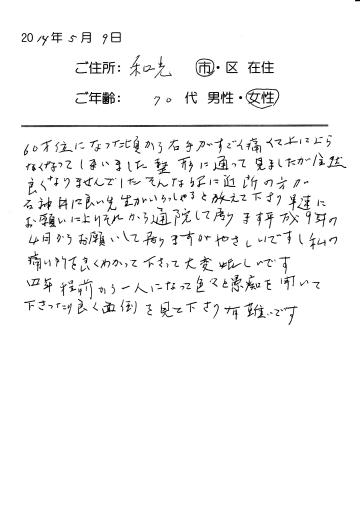 2014年5月9日
ご住所: 和光 市・区 在住
ご年齢: 70 代 男性・女性
60才位になった頃から右手がすごく痛くて上に上ら
なくなってしまいました 整形に通って見ましたが全然
良くなりませんでした そんな時に近所の方が
石神井に良い先生がいらっしゃると教えて下さり早速に
お願いに上りそれから通院して居ります平成9年の
4月からお願いして居りますがやさしいですし私の
痛い所を良くわかって下さって大変嬉しいです
四年程前から一人になって色々と愚痴を聞いて
下さったり良く面倒を見て下さり有難いです